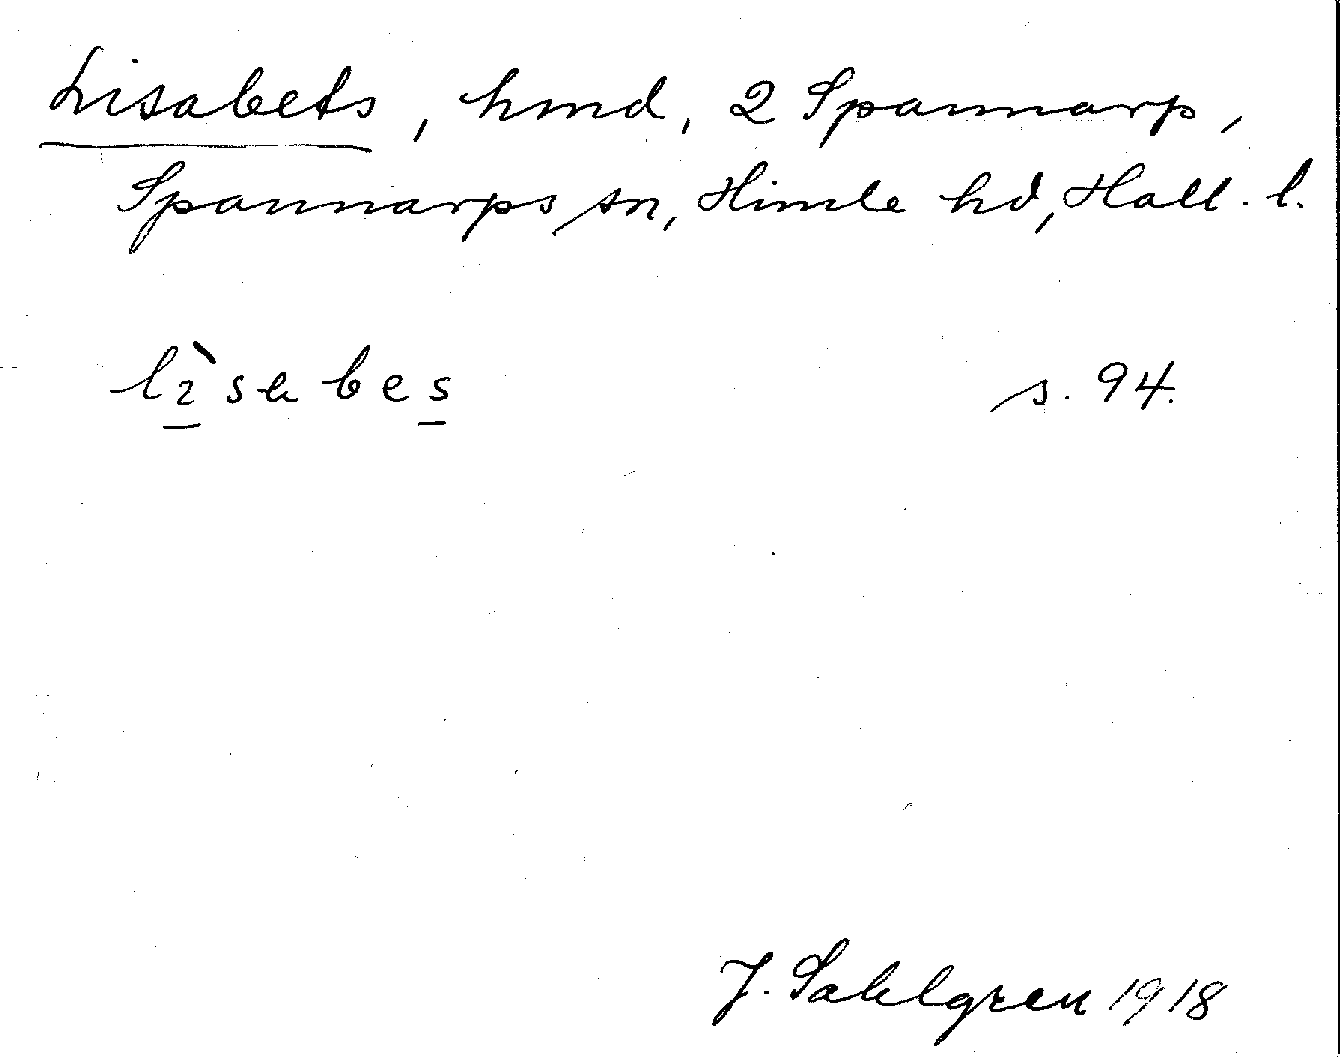 Lisabets, hmd, 2 Spannarp,
Spannarps sn, Himle hd, Hall. l.
lìsabes s. 94.
J. Sahlgren 1918